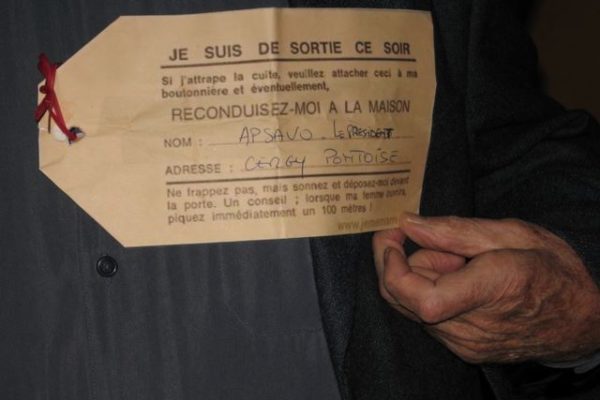 JE SUIS DE SORTIE CE SOIR
Si j'attrape la cuite, veuillez attacher ceci à ma
boutonnière et éventuellement,
RECONDUISEZ-MOI A LA MAISON
NOM : APSAVO. LE PRESIDENT
ADRESSE : CERGY PONTOISE
Ne frappez pas, mais sonnez et déposez-moi devant
la porte. Un conseil ; lorsque ma femme ouvrira,
piquez immédiatement un 100 mètres !